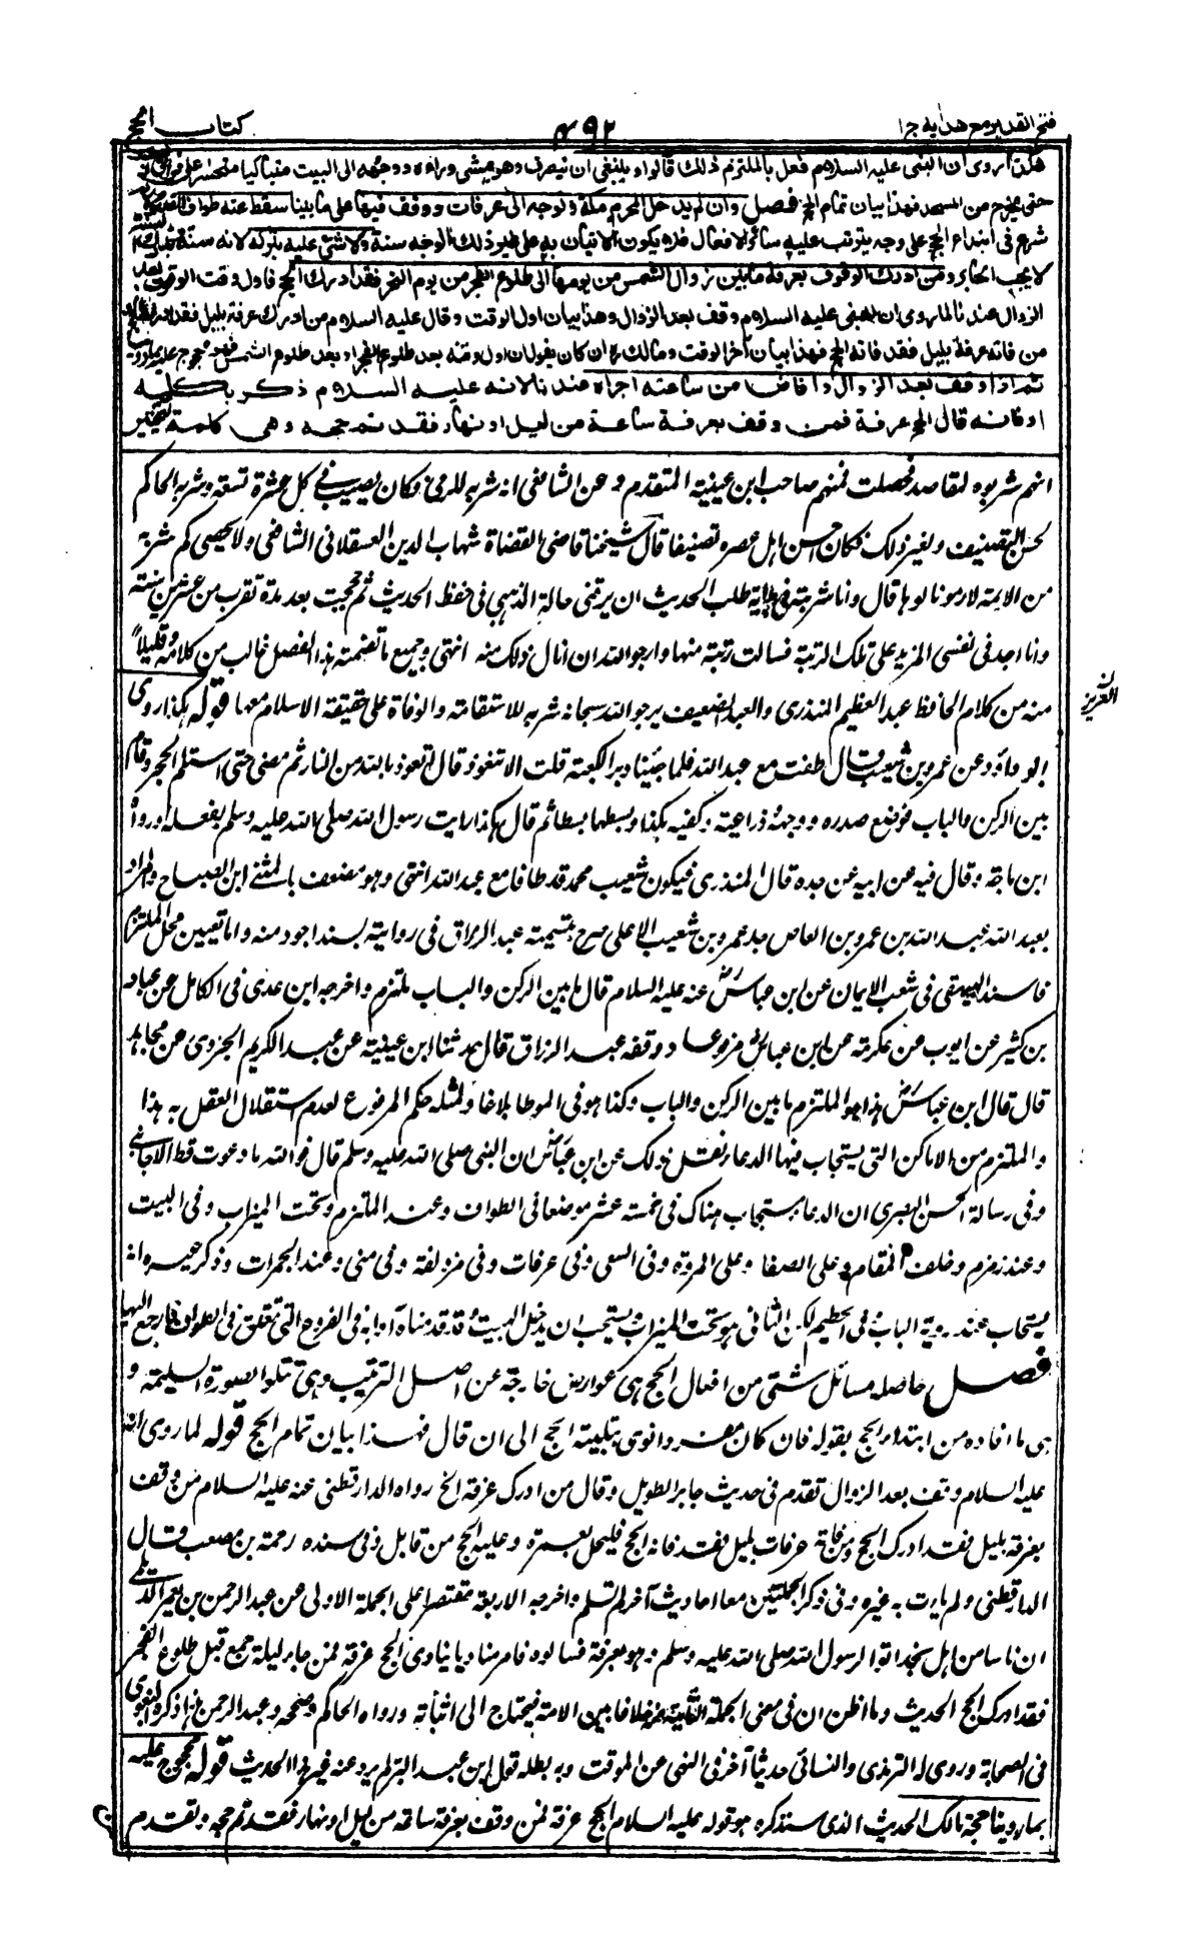 فتح القدير مع هدايه ج ١
٤٩٢
كتاب الحج
هكذا روى ان النبى عليه السلام فعل بالملتزم ذلك قالوا وينبغى ان ينصرف وهو يمشى وراءه ووجهه الى البيت متباكيا متحسرا على فراق البيت
حتى يخرج من المسجد فهذا بيان تمام الحج فصل وان لم يدخل المحرم مكة وتوجه الى عرفات ووقف فيها على ما بينا سقط عنه طواف القدوم لانه
شرع فى ابتداء الحج على وجه يترتب عليه سائر الافعال فلا يكون الاتيان به على غير ذلك الوجه سنة ولا شئ عليه بتركه لانه سنة وبترك السنة
لا يجب الجابر ومن ادرك الوقوف بعرفة ما بين زوال الشمس من يومها الى طلوع الفجر من يوم النحر فقد ادرك الحج فاول وقت الوقوف بعد
الزوال عندنا لما روى ان النبى عليه السلام وقف بعد الزوال وهذا بيان اول الوقت وقال عليه السلام من ادرك عرفة بليل فقد ادرك الحج و
من فاته عرفة بليل فقد فاته الحج فهذا بيان آخر الوقت ومالك ره ان كان يقول ان اول وقته بعد طلوع الفجر او بعد طلوع الشمس فهو محجوج عليه بما روينا
ثم اذا وقف بعد الزوال وافاض من ساعته اجزاه عندنا لانه عليه السلام ذكر بكلمة
او فانه قال الحج عرفة فمن وقف بعرفة ساعة من ليل او نهار فقد تم حجه وهى كلمة التخيير
انهم شربوه لمقاصد فحصلت فمنهم صاحب ابن عيينة المتقدم وعن الشافعى انه شربه للرمى فكان يصيب فى كل عشرة تسعة وشربه الحاكم
لحسن التصنيف ولغير ذلك فكان احسن اهل عصره تصنيفا قال شيخنا قاضى القضاة شهاب الدين العسقلانى الشافعى ولا يحصى كم شربه
من الائمة لامور نالوها قال وانا شربته فى بداية طلب الحديث ان يرزقنى حالة الذهبى فى حفظ الحديث ثم حججت بعد مدة تقرب من عشرين سنة
وانا اجد فى نفسى المزيد على تلك الرتبة فسالت رتبة منها وارجو الله ان انال ذلك منه انتهى وجميع ما تضمنه هذا الفصل غالب من كلامه وقليلا
منه من كلام الحافظ عبد العظيم المنذرى والعبد الضعيف يرجو الله سبحانه شربه للاستقامة والوفاة على حقيقة الاسلام معها قوله هكذا روى
العزيز
ابو داؤد عن عمرو بن شعيب قال طفت مع عبد الله فلما جئنا دبر الكعبة قلت الا تتعوذ قال اتعوذ بالله من النار ثم مضى حتى استلم الحجر وقام
بين الركن والباب فوضع صدره ووجهه وذراعيه وكفيه هكذا وبسطهما بسطا ثم قال هكذا رايت رسول الله صلى الله عليه وسلم يفعله ورواه
ابن ماجة وقال فيه عن ابيه عن جده قال المنذرى فيكون شعيب ومحمد قد طافا مع عبد الله انتهى وهو مضعف بالمثنى ابن الصباح والمراد
بعبد الله عبد الله بن عمرو بن العاص جد عمرو بن شعيب الاعلى صرح بتسميته عبد الرزاق فى روايته بسند اجود منه واما تعيين محل الملتزم
فاسند البيهقى فى شعب الايمان عن ابن عباس رض عنه عليه السلام قال ما بين الركن والباب ملتزم واخرجه ابن عدى فى الكامل عن عباد
بن كثير عن ايوب عن عكرمة عن ابن عباس رض مرفوعا ووقفه عبد الرزاق قال حدثنا ابن عيينة عن عبد الكريم الجزرى عن مجاهد
قال قال ابن عباس رض هذا هو الملتزم ما بين الركن والباب وكذا هو فى الموطا بلاغا ولمثله حكم المرفوع لعدم استقلال العقل به هذا
والملتزم من الاماكن التى يستجاب فيها الدعاء نقل ذلك عن ابن عباس ان النبى صلى الله عليه وسلم قال فوالله ما دعوت قط الا اجابنى
وفى رسالة الحسن البصرى ان الدعاء يستجاب هناك فى خمسة عشر موضعا فى الطواف وعند الملتزم وتحت الميزاب وفى البيت
وعند زمزم وخلف المقام وعلى الصفا وعلى المروة وفى السعى وفى عرفات وفى مزدلفة وفى منى وعند الجمرات وذكر غيره انه
يستجاب عند روية البيت وفى الحطيم لكن الثانى هو تحت الميزاب ويستحب ان يدخل البيت وقد قدمناه آدابه فى الفروع التى تتعلق فى الطواف فارجع اليها
فصل حاصله مسائل شتى من افعال الحج هى عوارض خارجة عن اصل الترتيب وهى تتلوا الصورة السليمة و
هى ما افاده من ابتداء الحج بقوله فان كان مفردا نوى بتلبيته الحج الى ان قال فهذا بيان تمام الحج قوله لما روى انه
عليه السلام وقف بعد الزوال تقدم فى حديث جابر الطويل وقال من ادرك عرفة الخ رواه الدارقطنى عنه عليه السلام من وقف
بعرفة بليل فقد ادرك الحج ومن فاته عرفات بليل فقد فاته الحج فليحل بعمرة وعليه الحج من قابل وفى سنده رحمة بن مصعب قال
الدارقطنى ولم يات به غيره وفى ذكر الجملتين معا احاديث آخر لم تسلم واخرجه الاربعة مقتصرا على الجملة الاولى عن عبد الرحمن بن يعمر الديلى
ان ناسا من اهل نجد اتوا رسول الله صلى الله عليه وسلم وهو بعرفة فسالوه فامر مناديا ينادى الحج عرفة فمن جاء ليلة جمع قبل طلوع الفجر
فقد ادرك الحج الحديث وما اظن ان فى معنى الجملة الثانية خلافا بين الامة فيحتاج الى اثباته ورواه الحاكم وصححه وعبد الرحمن هذا ذكره البغوى
فى الصحابة وروى له الترمذى والنسائى حديثا آخر فى النهى عن المزفت وبه بطل قول ابن عبد البر لم يرو عنه غير هذا الحديث قوله محجوج عليه
بما روينا حجة مالك الحديث الذى سنذكره هو قوله عليه السلام الحج عرفة فمن وقف بعرفة ساعة من ليل او نهار فقد تم حجه وتقدم